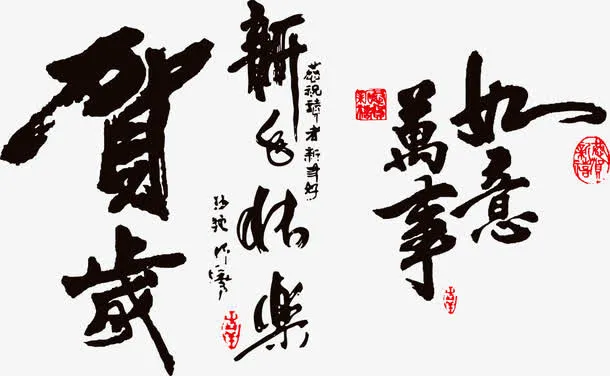 賀歲
新年快樂
恭祝讀者新年好
萬事
如意